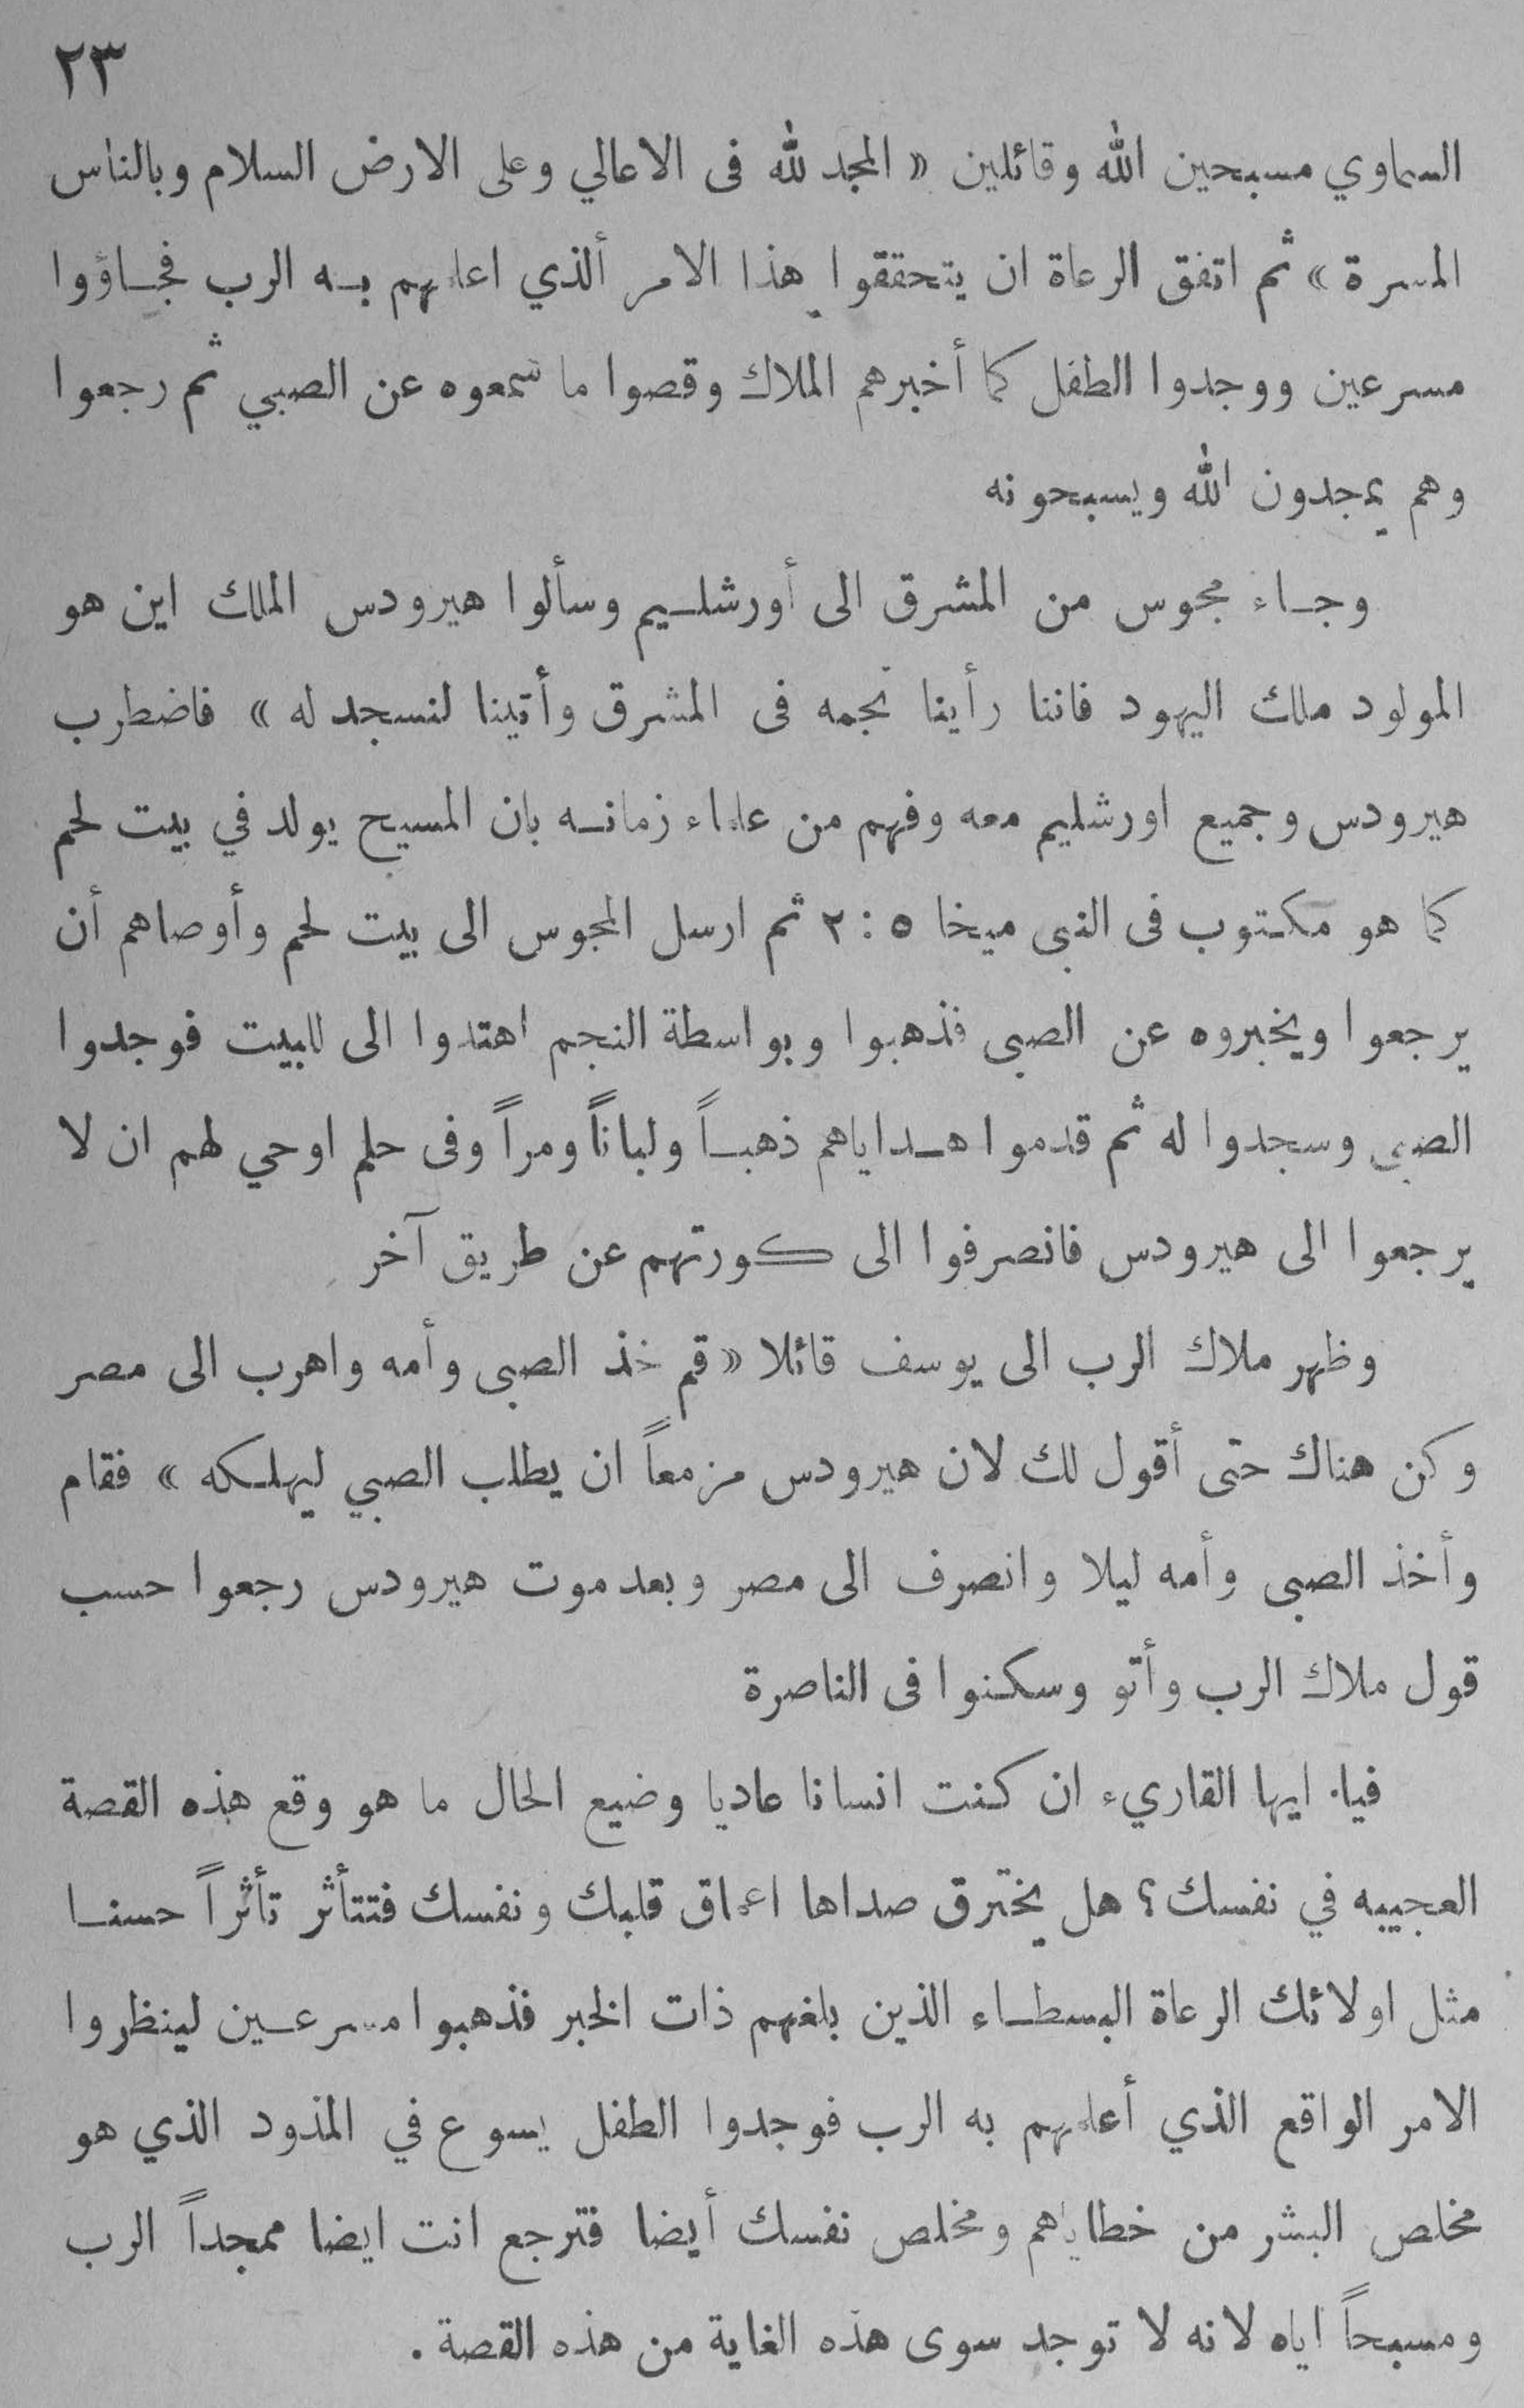 ٢٣
السماوي مسبحين الله وقائلين « المجد لله فى الاعالي وعلى الارض السلام وبالناس
المسرة » ثم اتفق الرعاة ان يتحققوا هذا الامر ألذي اعلمهم بـه الرب فجـاؤوا
مسرعين ووجدوا الطفل كما أخبرهم الملاك وقصوا ما سمعوه عن الصبي ثم رجعوا
وهم يمجدون الله ويسبحونه
وجـاء مجوس من المشرق الى أورشلـيم وسألوا هيرودس الملك اين هو
المولود ملك اليهود فاننا رأينا نجمه فى المشرق وأتينا لنسجد له » فاضطرب
هيرودس وجميع اورشليم معه وفهم من علماء زمانـه بان المسيح يولد في بيت لحم
كما هو مكتوب فى النبى ميخا ٥ : ٢ ثم ارسل المجوس الى بيت لحم وأوصاهم أن
يرجعوا ويخبروه عن الصبى فذهبوا وبواسطة النجم اهتدوا الى للبيت فوجدوا
الصبى وسجدوا له ثم قدموا هـداياهم ذهبـاً ولباناً ومراً وفى حلم اوحي لهم ان لا
يرجعوا الى هيرودس فانصرفوا الى كورتهم عن طريق آخر
وظهر ملاك الرب الى يوسف قائلا « قم خذ الصبى وأمه واهرب الى مصر
وكن هناك حتى أقول لك لان هيرودس مزمعاً ان يطلب الصبي ليهلكه » فقام
وأخذ الصبى وأمه ليلا وانصرف الى مصر وبعد موت هيرودس رجعوا حسب
قول ملاك الرب وأتو وسكنوا فى الناصرة
فيا. ايها القاريء ان كنت انسانا عاديا وضيع الحال ما هو وقع هذه القصة
العجيبه في نفسك ؟ هل يخترق صداها اعماق قلبك ونفسك فتتأثر تأثراً حسنـا
مثل اولائك الرعاة البسطـاء الذين بلغهم ذات الخبر فذهبوا مسرعـين لينظروا
الامر الواقع الذي أعلمهم به الرب فوجدوا الطفل يسوع في المذود الذي هو
مخلص البشر من خطاياهم ومخلص نفسك أيضا فترجع انت ايضا ممجداً الرب
ومسبحاً اياه لانه لا توجد سوى هذه الغاية من هذه القصة .